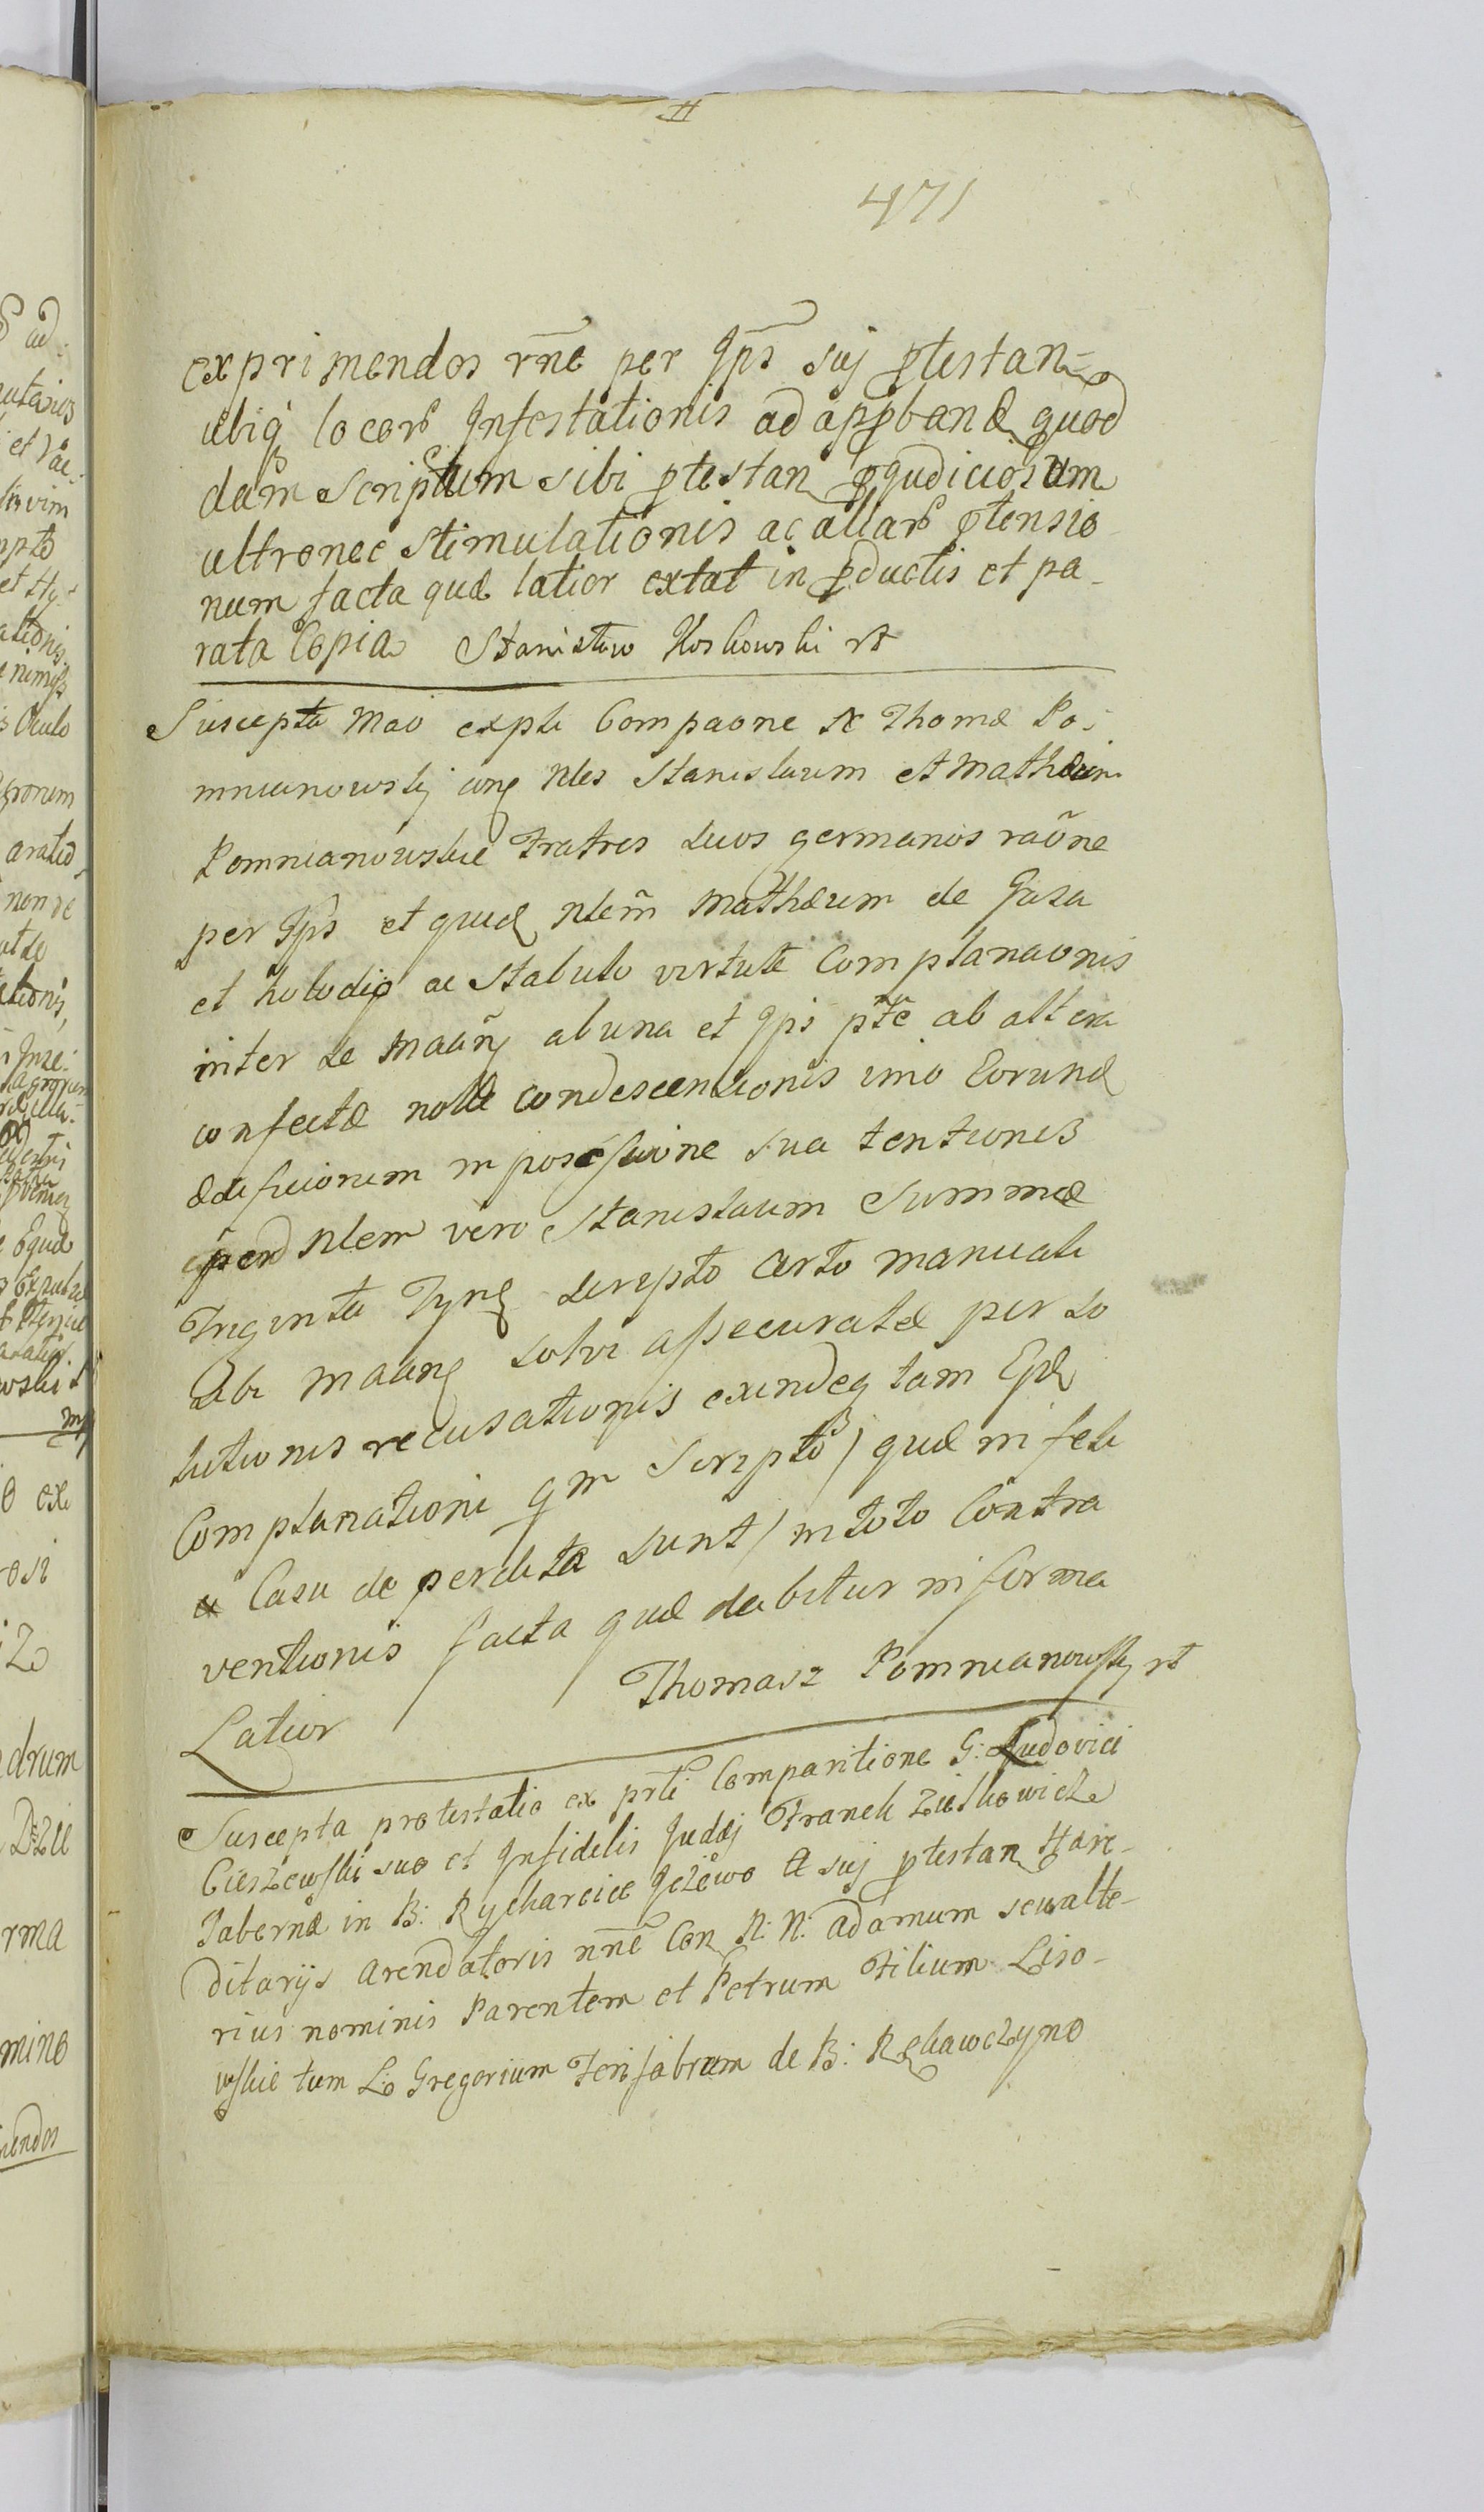 471
exprimendos rñe per Jpŝ suj ptestan=
ubiq locorũ Jnfestationis ad appband quod
dam Scriptum sibi ptestan pjudiciosum
ultronee Stimulationis ac aliarũ ptensio
num facta quæ latior extat in pductis et pa-
rata Copia Stanisław Koskowski rt
Suscepta Mao expti Compaone N Thomæ Po-
mnianowskj conq Nles Stanislaum et Mathæum
Pomnianowskie Fratres suos germanos raõne
per Jps et quid Nlem Mathæum de Casa
et holodijo ac Stabulo virtute Complanaonis
inter se Maañ ab una et Jpŝ pte ab altera
confectæ nolle condescensionis imo Eorund
ædificiorum in possessione sua tentionis
Nlem vero Stanislaum Summæ
Triginta Tynf scripto certo manuali
sibi Maanq solvi assecuratæ per so
lutionis recusationis exindeq tam Epd
Complanationi qm Scripto / quæ infeli
ci Casu de perdita sunt / in toto Contra
ventionis facta quæ dabitur in forma
Latior Thomasz Pomnianowskj rt
Suscepta protestatio ex prti Comparitione G: Ludovici
Cieszewski suo et Jnfidelis Judæj Franek Zielkowicz
Tabernæ in B: Rycharcice Jeżewo A suj ptestan Hære-
ditarijs Arendatoris nñe Con N: N: Adamum seu alte-
rius nominis Parentem et Petrum Filium Liso-
wskie tum L: Gregorium Ferifabrum de B: Rękawczyno